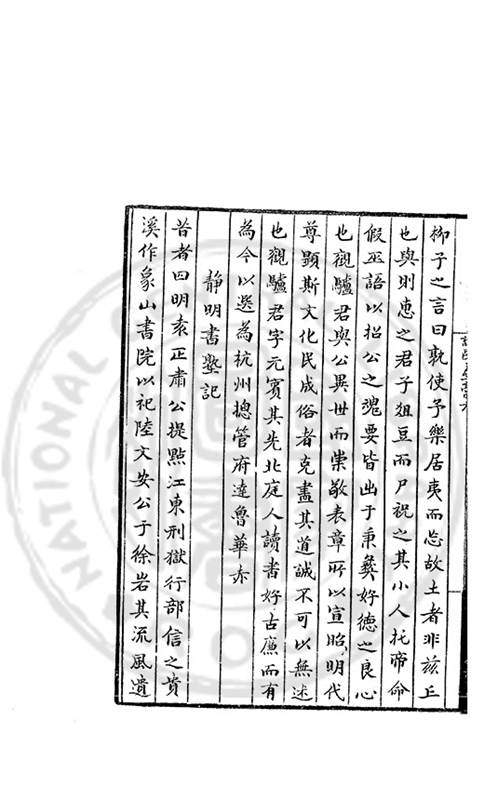 柳子之言曰孰使予樂居夷而忘故土者非茲丘
也與則惠之君子俎豆而尸祝之其小人托帝命
假巫語以招公之魂要皆出于秉彝好德之良心
也觀驢君與公異世而崇敬表章所以宣昭明代
尊顯斯文化民成俗者克盡其道誠不可以無述
也觀驢君字元賓其先北庭人讀書好古廉而有
為今以選為杭州總管府達魯華赤
靜明書塾記
昔者四明袁正肅公提點江東刑獄行部信之貴
溪作象山書院以祀陸文安公于徐岩其流風遺
NATIONAL